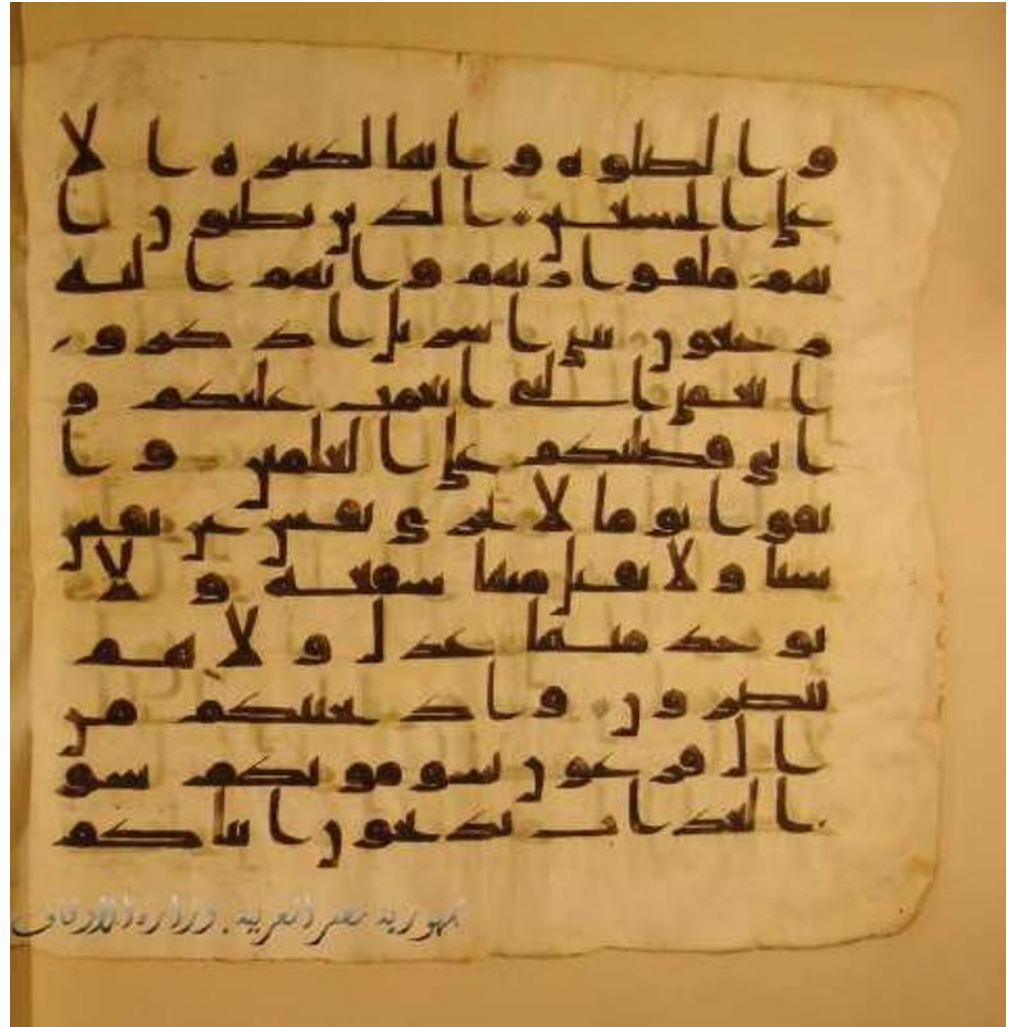 و الصلوه و انها لكبيره الا
على الخشعين الذين يظنون ا
نهم ملقوا ربهم و انهم اليه
ر جعون يبني اسريل اذ كرو
ا نعمتي التي انعمت عليكم و
ا ني فضلتكم على العلمين و ا
تقوا يوما لا تجز ي نفس عن نفس
شيا و لا يقبل منها شفعه و لا
يو خذ منها عدل و لا هم
ينصرون و اذ نجينكم من
ا ل فر عون يسومونكم سو
العذاب يذ بحون ابناكم
جمهورية مصر العربية . وزارة الأوقاف